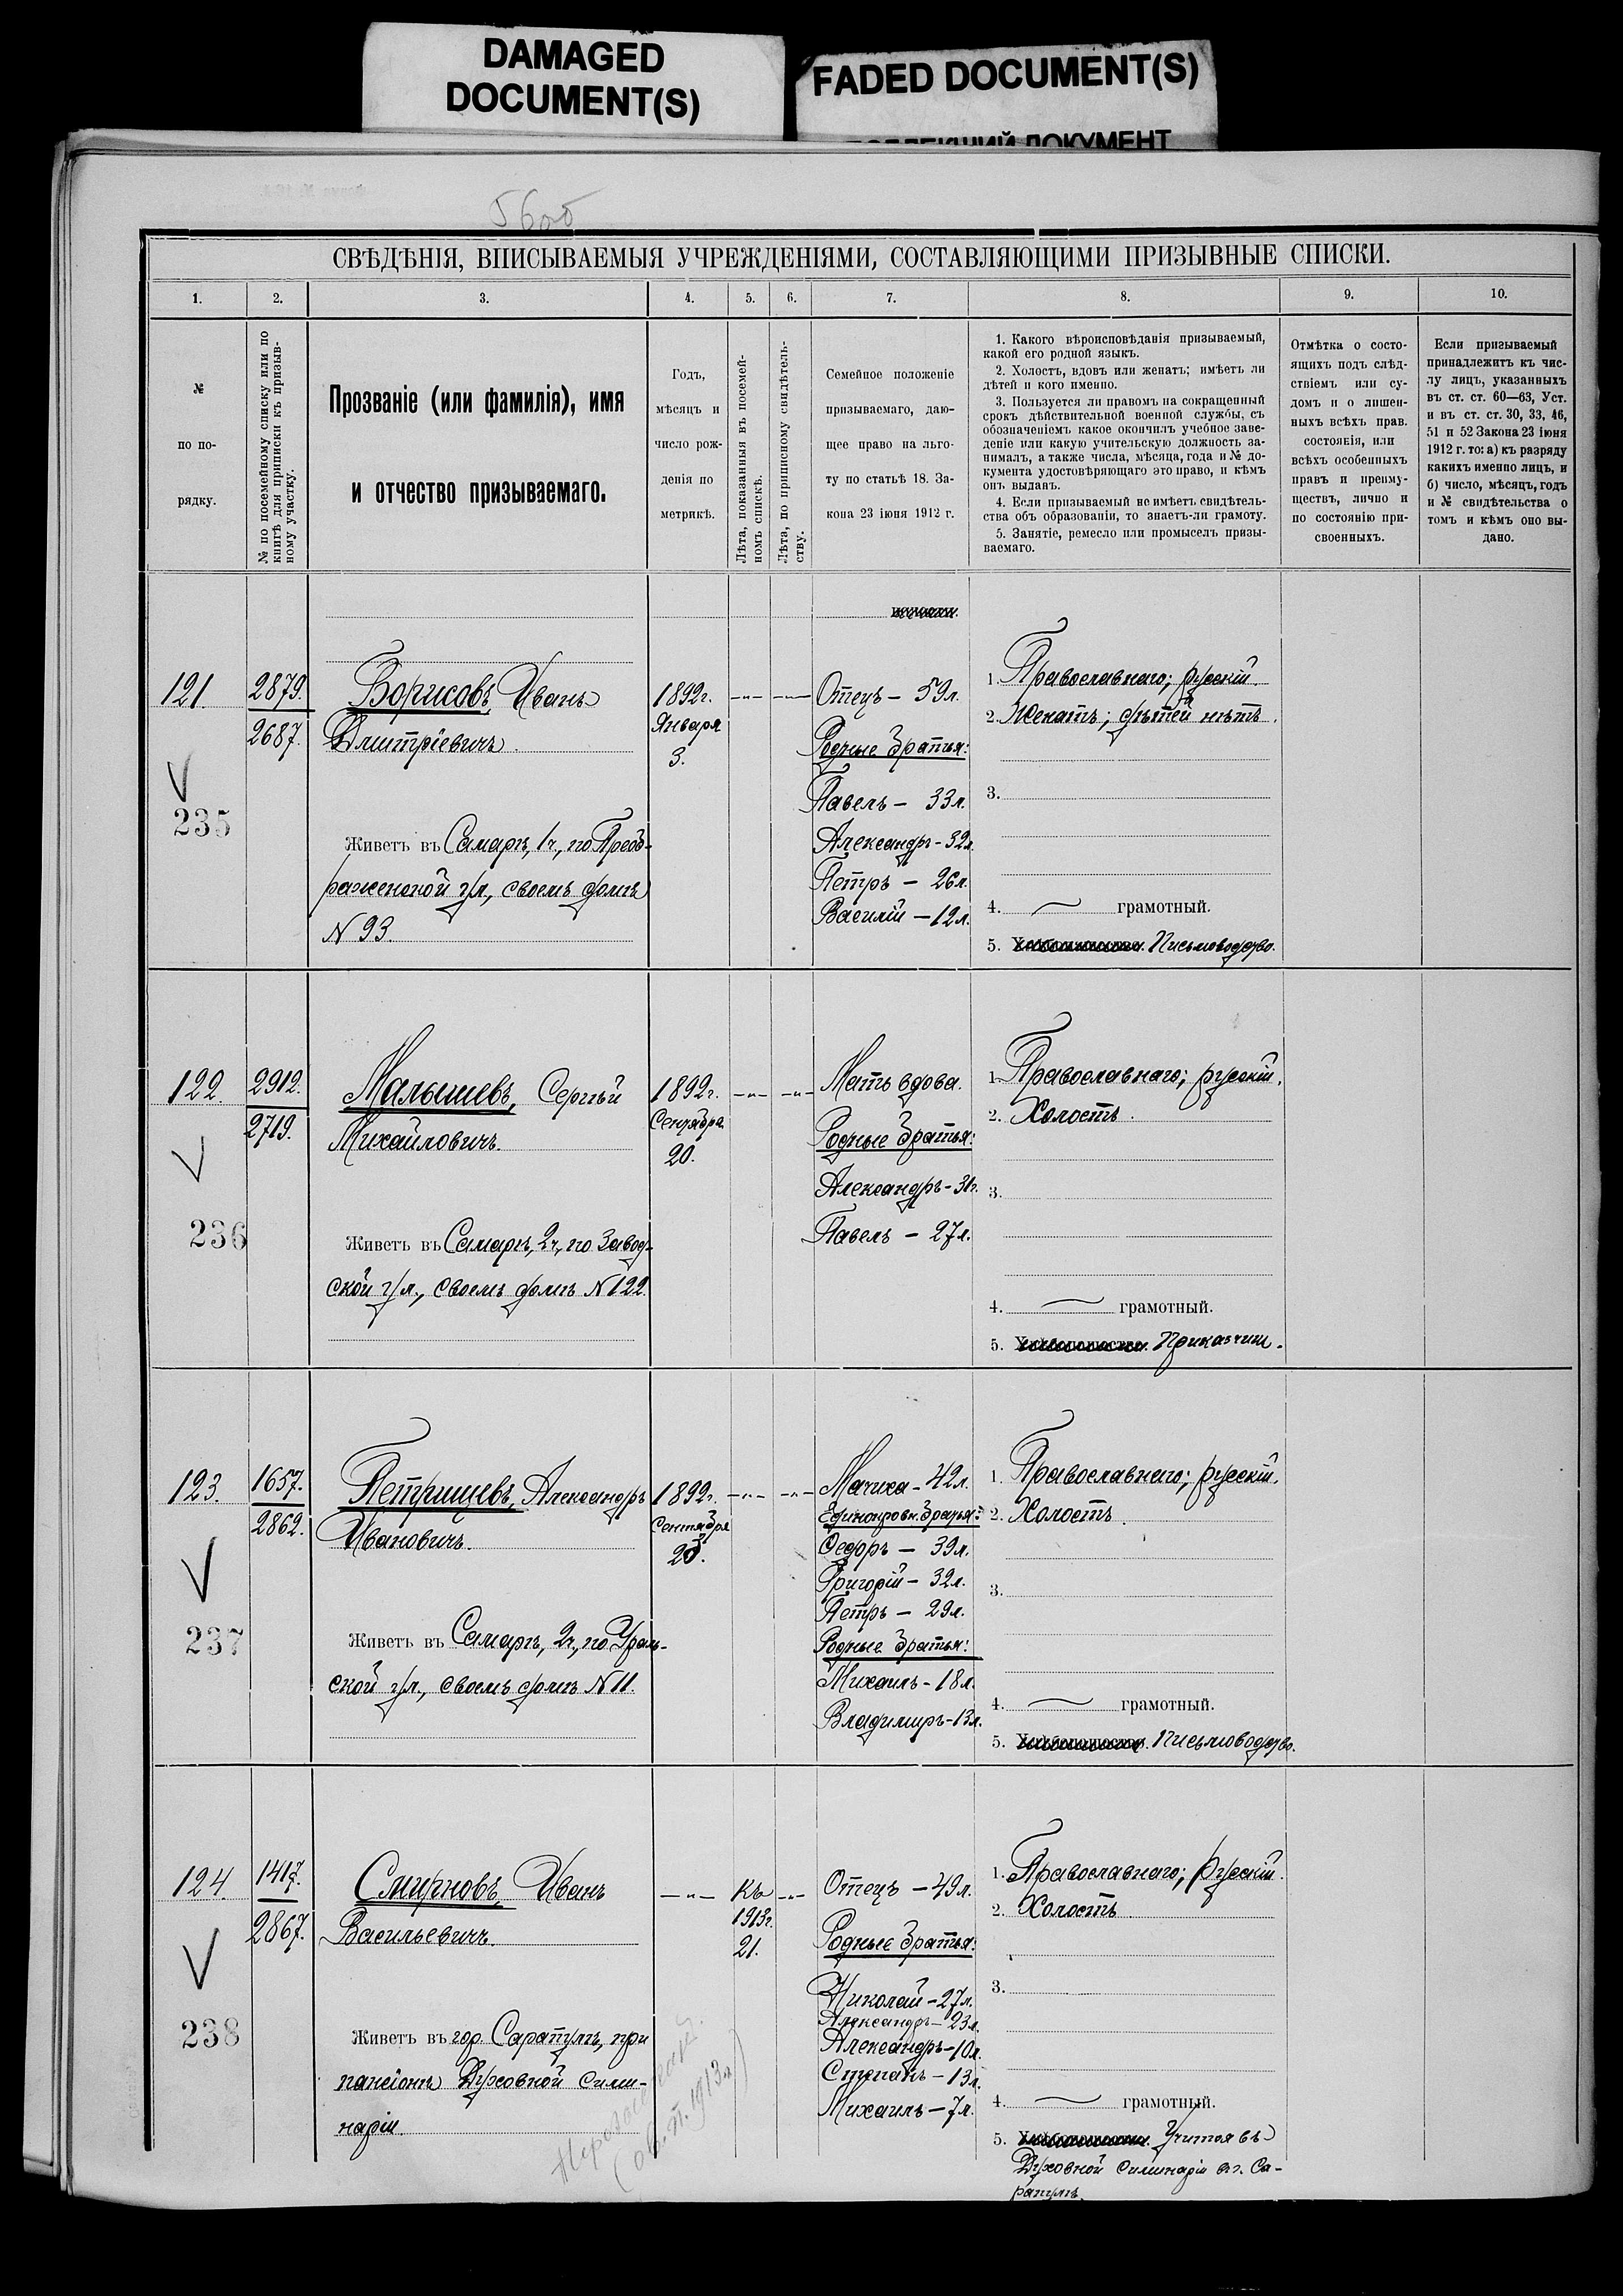 DAMAGED
DOCUMENT(S)
FADED DOCUMENT(S)
ДОКУМЕНТ
СВѢДѢНІЯ, ВПИСЫВАЕМЫЯ УЧРЕЖДЕНІЯМИ, СОСТАВЛЯЮЩИМИ ПРИЗЫВНЫЕ СПИСКИ.
1. 2. 3. 4. 5. 6. 7. 8. 9. 10.
№
по по-
рядку.
№ по посемейному списку или по
книгѣ для приписки къ призыв-
ному участку.
Прозваніе (или фамилія), имя
и отчество призываемаго.
Годъ,
мѣсяцъ и
число рож-
денія по
метрикѣ.
Лѣта, показанныя въ посемей-
номъ спискѣ.
Лѣта, по приписному свидѣтель-
ству.
Семейное положеніе
призываемаго, даю-
щее право на льго-
ту по статьѣ 18. За-
кона 23 іюня 1912 г.
1. Какого вѣроисповѣданія призываемый,
какой его родной языкъ.
2. Холостъ, вдовъ или женатъ; имѣетъ ли
дѣтей и кого именно.
3. Пользуется ли правомъ на сокращенный
срокъ дѣйствительной военной службы, съ
обозначеніемъ какое окончилъ учебное заве-
деніе или какую учительскую должность за-
нималъ, а также числа, мѣсяца, года и № до-
кумента удостовѣряющаго это право, и кѣмъ
онъ выданъ.
4. Если призываемый не имѣетъ свидѣтель-
ства объ образованіи, то знаетъ-ли грамоту.
5. Занятіе, ремесло или промыселъ призы-
ваемаго.
Отмѣтка о состо-
ящихъ подъ слѣд-
ствіемъ или су-
домъ и о лишен-
ныхъ всѣхъ прав.
состоянія, или
всѣхъ особенныхъ
правъ и преиму-
ществъ, лично и
по состоянію при-
своенныхъ.
Если призываемый
принадлежитъ къ чис-
лу лицъ, указанныхъ
въ ст. ст. 60—63, Уст.
и въ ст. ст. 30, 33, 46,
51 и 52 Закона 23 іюня
1912 г. то: а) къ разряду
какихъ именно лицъ, и
б) число, мѣсяцъ, годъ
и № свидѣтельства о
томъ и кѣмъ оно вы-
дано.
121.
2879.
2687.
235
Борисовъ, Иванъ
Дмитріевичъ.
Живетъ въ Самарѣ, 1ч., по Преоб-
раженской ул., своемъ домѣ
N 93.
1892г.
Января
3.
Отецъ – 59л.
Родные братья:
Павелъ – 33л.
Александръ – 32л.
Петръ – 26л.
Василій – 12л.
1. Православнаго; русскій.
2. Женатъ; дѣтей нѣтъ.
3.
4. грамотный.
5. Письмоводство.
122.
2912.
2719.
236
Малышевъ, Сергѣй
Михайловичъ.
Живетъ въ Самарѣ, 2ч., по Завод-
ской ул., своемъ домѣ N 122.
1892г.
Сентября
20.
Мать вдова.
Родные братья:
Александръ – 31г.
Павелъ – 27л.
1. Православнаго; русскій.
2. Холостъ.
3.
4. грамотный.
5. Приказчик.
123.
1657.
2862.
237
Петрищевъ, Александръ
Ивановичъ.
Живетъ въ Самарѣ, 2ч., по Ураль-
ской ул., своемъ домѣ N 11.
1892г.
Сентября
Мачиха – 42л.
Единокровн. братья:
Ѳедоръ – 39л.
Григорій – 32л.
Петръ – 29л.
Родные братья:
Михаилъ – 18л.
Владимиръ – 13л.
1. Православнаго; русскій.
2. Холостъ.
3.
4. грамотный.
5. Письмоводство.
124.
1417.
2867.
238
Смирновъ, Иванъ
Васильевичъ.
Живетъ въ гор. Сарапулѣ, при
пансіонѣ Духовной Семи-
наріи.
Къ
1913г.
21.
Отецъ – 49л.
Родные братья:
Николай – 27л.
Александръ – 23л.
Александръ – 10л.
Степанъ – 13л.
Михаилъ – 7л.
1. Православнаго; русскій.
2. Холостъ
3.
4. грамотный.
5. Учится въ
Духовной Семинаріи въ г. Са-
рапулѣ.